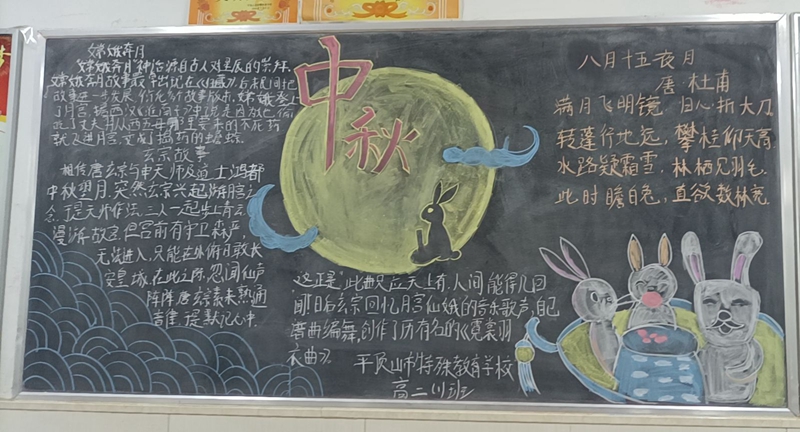 嫦娥奔月
"嫦娥奔月"神话源自古人对星辰的崇拜,
嫦娥奔月故事最早出现在《归藏》,后来民间把
玄宗故事
相传唐玄宗与申天师及道士鸿都
中秋望月,突然玄宗兴起游月宫之
念,于是天师作法,三人一起步上青云
漫游月宫,但宫前有守卫森严,
无法进入,只能在外俯瞰长
安皇城,在此之际,忽闻仙声
阵阵,唐玄宗素来熟通
音律,捉默记心中,
中秋
这正是"此曲只应天上有,人间能得几回
闻!"日后玄宗回忆月宫仙娥的音乐歌声,自己
谱曲编舞,创作了历有名的《霓裳羽
衣曲》。
平顶山市特殊教育学校
高二(1)班
八月十五夜月
唐 杜甫
满月飞明镜,归心折大刀
转蓬行地远,攀桂仰天高
水路疑霜雪,林栖见羽毛
此时瞻白兔,直欲数秋毫